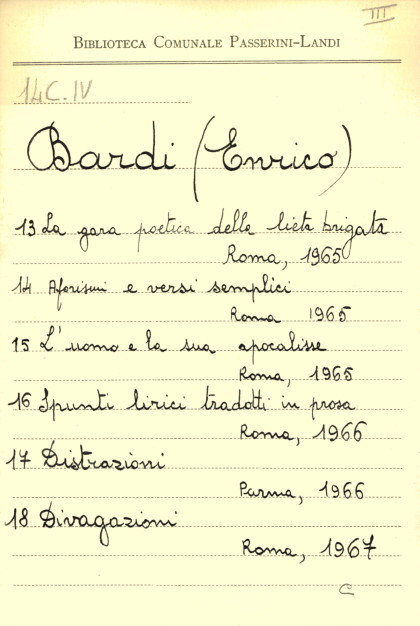 III
BIBLIOTECA COMUNALE PASSERINI-LANDI
14C.IV
Bardi (Enrico)
13 La gara poetica della lieta brigata
Roma, 1965
14 Aforismi e versi semplici
Roma 1965
15 L'uomo e la sua apocalisse
Roma, 1965
16 Spunti lirici tradotti in prosa
Roma, 1966
17 Distrazioni
Parma, 1966
18 Divagazioni
Roma, 1967
C